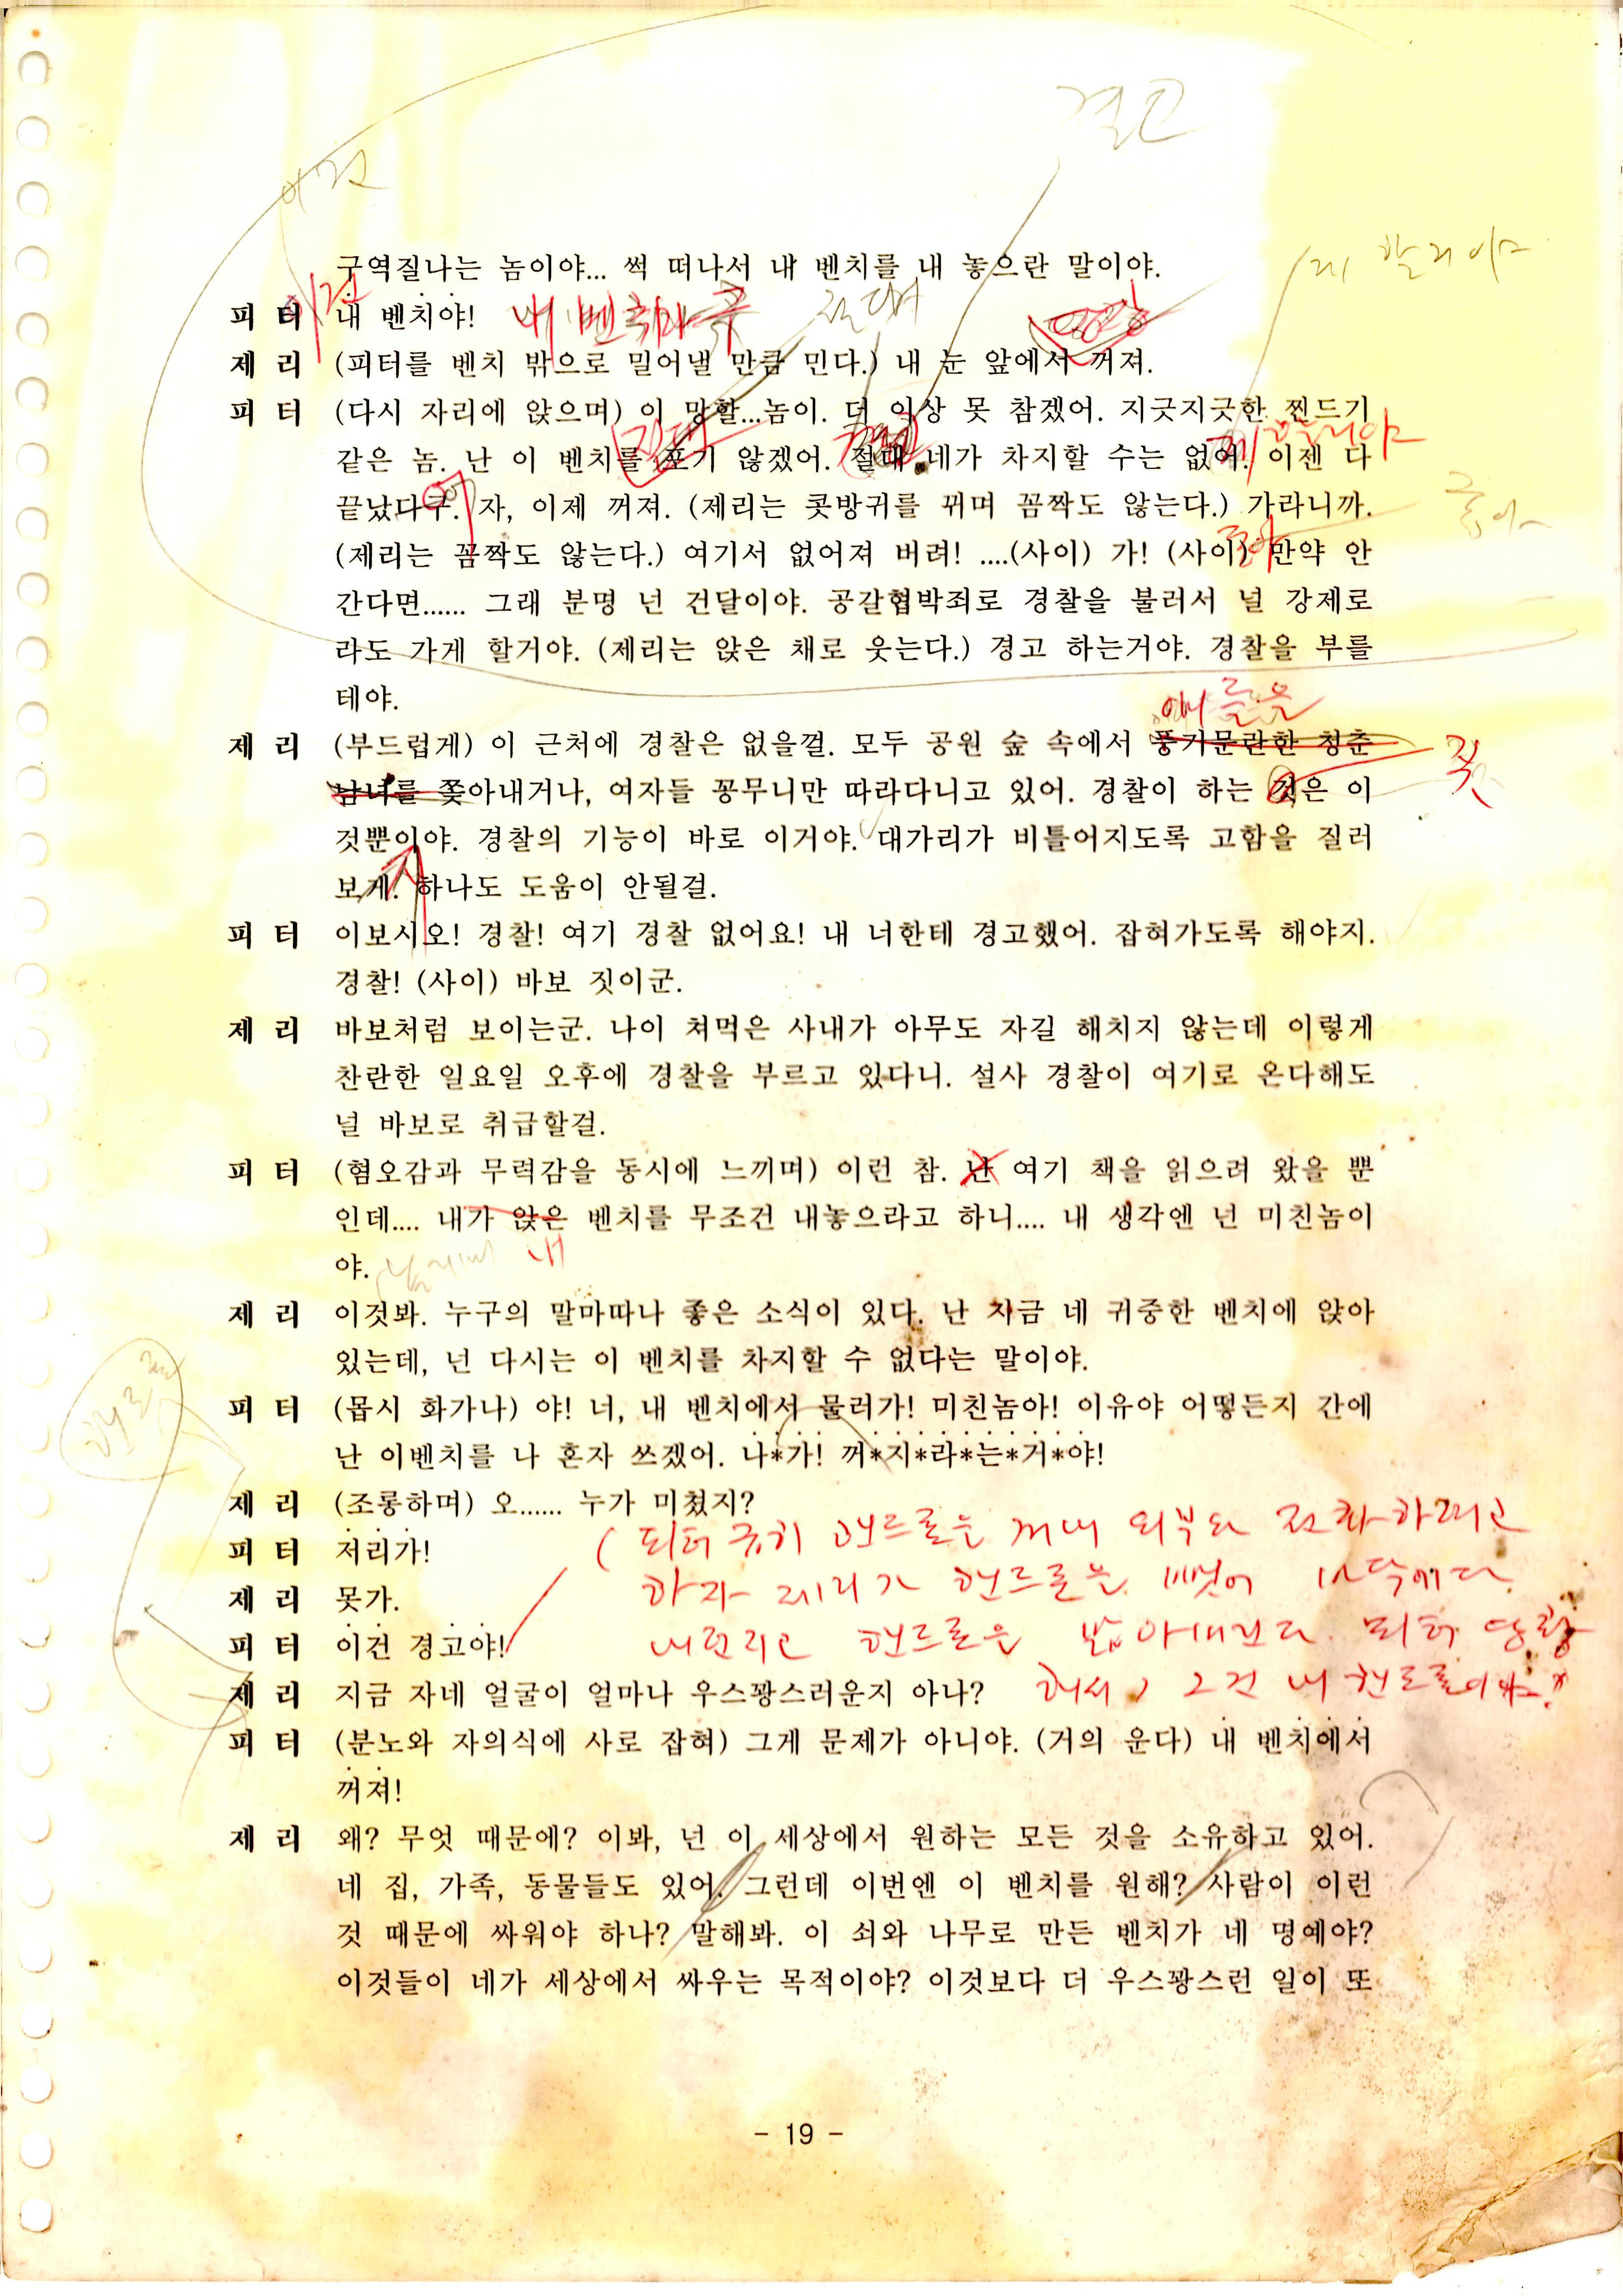 결고
이건
구역질나는 놈이야... 썩 떠나서 내 벤치를 내 놓으란 말이야.
이건
피 터 내 벤치야! 내 벤치라구 절대
제 리 (피터를 벤치 밖으로 밀어낼 만큼 민다.) 내 눈 앞에서 꺼져.
피 터 (다시 자리에 앉으며) 이 망할...놈이. 더 이상 못 참겠어. 지긋지긋한 찐드기
같은 놈. 난 이 벤치를 포기 않겠어. 절대 네가 차지할 수는 없어. 이젠 다
끝났다구. 자, 이제 꺼져. (제리는 콧방귀를 뀌며 꼼짝도 않는다.) 가라니까.
좋아
(제리는 꼼짝도 않는다.) 여기서 없어져 버려! ....(사이) 가! (사이) 만약 안
간다면...... 그래 분명 넌 건달이야. 공갈협박죄로 경찰을 불러서 널 강제로
라도 가게 할거야. (제리는 앉은 채로 웃는다.) 경고 하는거야. 경찰을 부를
테야.
애들을
제 리 (부드럽게) 이 근처에 경찰은 없을껄. 모두 공원 숲 속에서 풍기문란한 청춘
남녀를 쫓아내거나, 여자들 꽁무니만 따라다니고 있어. 경찰이 하는 것은 이
짓
것뿐이야. 경찰의 기능이 바로 이거야. 대가리가 비틀어지도록 고함을 질러
보게. 하나도 도움이 안될걸.
피 터 이보시오! 경찰! 여기 경찰 없어요! 내 너한테 경고했어. 잡혀가도록 해야지.
경찰! (사이) 바보 짓이군.
제 리 바보처럼 보이는군. 나이 쳐먹은 사내가 아무도 자길 해치지 않는데 이렇게
찬란한 일요일 오후에 경찰을 부르고 있다니. 설사 경찰이 여기로 온다해도
널 바보로 취급할걸.
피 터 (혐오감과 무력감을 동시에 느끼며) 이런 참. 난 여기 책을 읽으려 왔을 뿐
인데.... 내가 앉은 벤치를 무조건 내놓으라고 하니.... 내 생각엔 넌 미친놈이
야. 내
제 리 이것봐. 누구의 말마따나 좋은 소식이 있다. 난 지금 네 귀중한 벤치에 앉아
있는데, 넌 다시는 이 벤치를 차지할 수 없다는 말이야.
피 터 (몹시 화가나) 야! 너, 내 벤치에서 물러가! 미친놈아! 이유야 어떻든지 간에
난 이벤치를 나 혼자 쓰겠어. 나*가! 꺼*지*라*는*거*야!
핸드폰
제 리 (조롱하며) 오...... 누가 미쳤지?
피 터 저리가!
(피터 급히 핸드폰을 꺼내 외부와 전화하려고
제 리 못가.
하자 제리가 핸드폰을 뺏어 바닥에다
피 터 이건 경고야!
내던지고 핸드폰을 밟아댄다 피터 당황
제 리 지금 자네 얼굴이 얼마나 우스꽝스러운지 아나?
해서) 그건 내 핸드폰이야?
피 터 (분노와 자의식에 사로 잡혀) 그게 문제가 아니야. (거의 운다) 내 벤치에서
꺼져!
제 리 왜? 무엇 때문에? 이봐, 넌 이 세상에서 원하는 모든 것을 소유하고 있어.
네 집, 가족, 동물들도 있어. 그런데 이번엔 이 벤치를 원해? 사람이 이런
것 때문에 싸워야 하나? 말해봐. 이 쇠와 나무로 만든 벤치가 네 명예야?
이것들이 네가 세상에서 싸우는 목적이야? 이것보다 더 우스꽝스런 일이 또
- 19 -